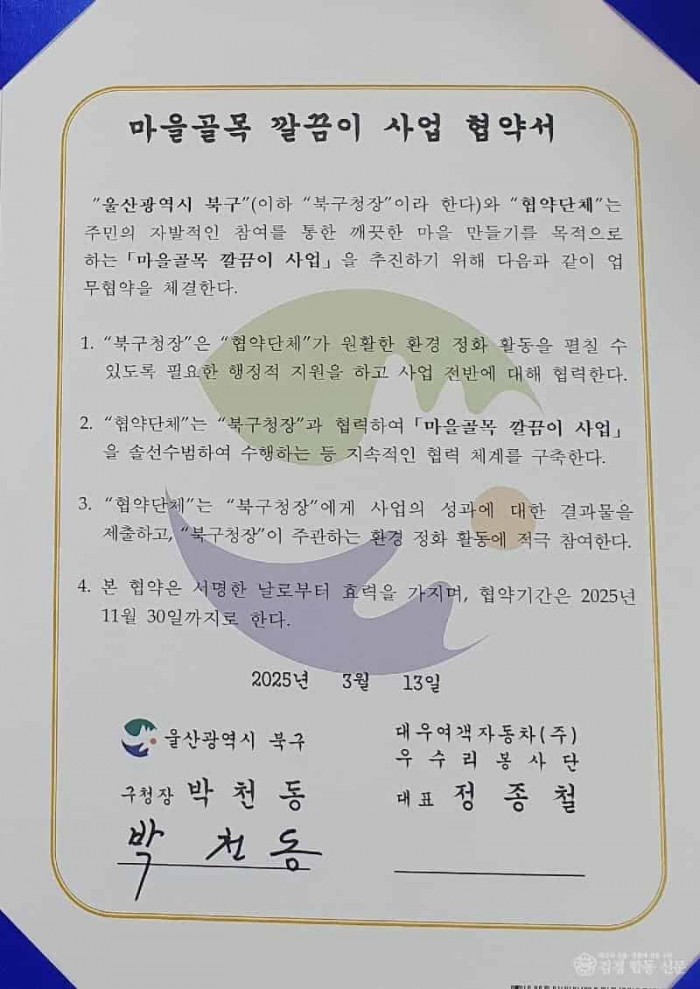 마을골목 깔끔이 사업 협약서
"울산광역시 북구"(이하 "북구청장"이라 한다)와 "협약단체"는
주민의 자발적인 참여를 통한 깨끗한 마을 만들기를 목적으로
하는 「마을골목 깔끔이 사업」 을 추진하기 위해 다음과 같이 업
무협약을 체결한다.
1. "북구청장"은 "협약단체"가 원활한 환경 정화 활동을 펼칠 수
있도록 필요한 행정적 지원을 하고 사업 전반에 대해 협력한다.
2. "협약단체"는 "북구청장"과 협력하여 「마을골목 깔끔이 사업」
을 솔선수범하여 수행하는 등 지속적인 협력 체계를 구축한다.
3. "협약단체"는 "북구청장"에게 사업의 성과에 대한 결과물을
제출하고, "북구청장"이 주관하는 환경 정화 활동에 적극 참여한다.
4. 본 협약은 서명한 날로부터 효력을 가지며, 협약기간은 2025년
11월 30일까지로 한다.
2025년 3월 13일
울산광역시 북구
구청장 박천동
박천동
대우여객자동차(주)
우수리봉사단
대표 정종철
검경 합동 신문